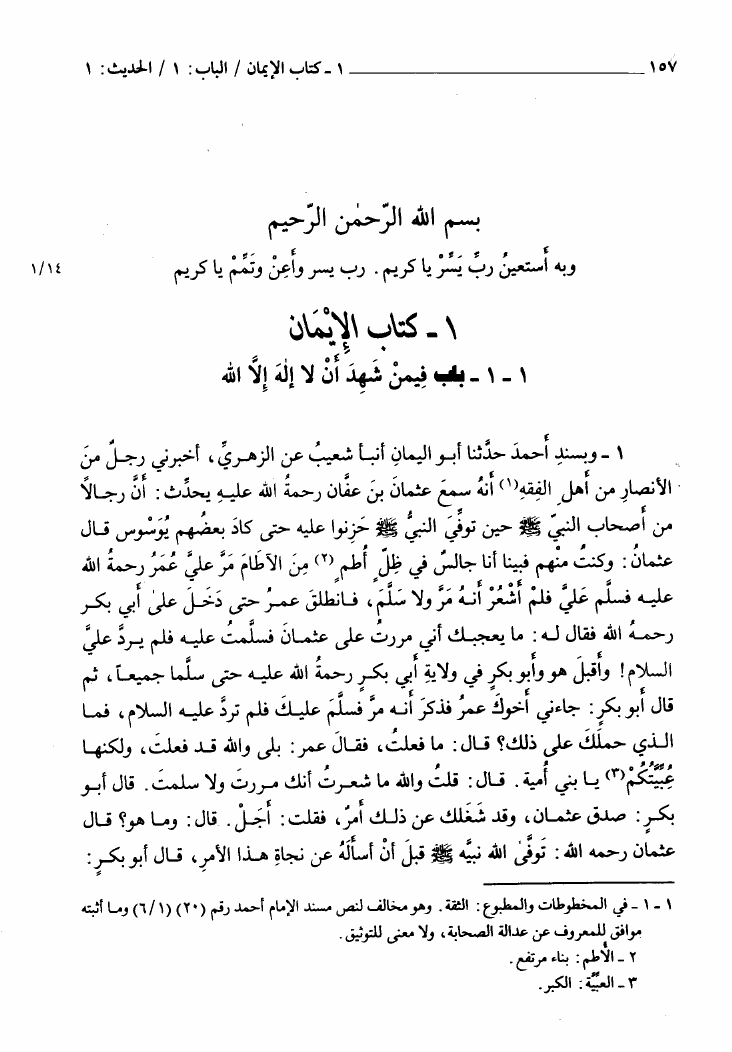 ١٥٧ ــــــــــــــــــــــــــــــــ ١ ـ كتاب الإيمان / الباب: ١ / الحديث: ١
بسم الله الرّحمٰن الرّحيم
وبه أَستعينُ ربِّ يَسِّرْ يا كريم. رب يسر وأَعِنْ وتَمِّمْ يا كريم
١/١٤
١ ـ كتاب الإِيْمَان
١ ـ ١ ـ باب فِيمنْ شَهِدَ أَنْ لا إلٰهَ إِلَّا الله
١ ـ وبسندِ أَحمدَ حدَّثنا أبو اليمانِ أنبأ شعيبُ عن الزهريِّ، أخبرني رجلٌ منَ
الأنصارِ من أهلِ الفِقه(١) أَنهُ سمعَ عثمانَ بنَ عفَّان رحمةُ الله عليهِ يحدِّث: أَنَّ رجالاً
من أصحاب النبيّ ﷺ حين توفِّيَ النبيُّ ﷺ حَزِنوا عليه حتى كادَ بعضُهم يُوَسْوِس قال
عثمانُ: وكنتُ منْهم فبينا أنا جالسٌ في ظِلِّ أُطمٍ(٢) مِنَ الآطَامِ مَرَّ عليَّ عُمَرُ رحمةُ الله
عليه فسلَّم عَليَّ فلمْ أَشْعُرْ أَنهُ مَرَّ ولا سَلَّم، فانطلقَ عمرُ حتى دَخَلَ علىٰ أبي بكر
رحمةُ الله فقال له: ما يعجبك أني مررتُ على عثمانَ فسلَّمتُ عليه فلم يردَّ عليَّ
السلام! وأَقبلَ هو وأَبو بكرٍ في ولايةِ أبي بكرٍ رحمةُ الله عليه حتى سلَّما جميعاً، ثم
قال أبو بكرٍ: جاءني أَخوكَ عمرُ فذكرَ أنه مرَّ فسلَّم عليكَ فلم تردَّ عليه السلام، فما
الذي حملَكَ على ذلك؟ قال: ما فعلتُ، فقالَ عمر: بلى والله قد فعلتَ، ولكنها
عُبِّيَّتُكُمْ(٣) يا بني أمية. قال: قلتُ والله ما شعرتُ أنك مررتَ ولا سلمتَ. قال أبو
بكرٍ: صدق عثمان، وقد شَغَلك عن ذلك أمرٌ، فقلت: أَجَلْ. قال: وما هو؟ قال
عثمان رحمه الله: تَوفَّىٰ الله نبيَّه ﷺ قبلَ أنْ أسأَلَهُ عن نجاةِ هذا الأمرِ، قال أبو بكرٍ:
١ ـ ١ ـ في المخطوطات والمطبوع: الثقة. وهو مخالف لنص مسند الإمام أحمد رقم (٢٠) (٦/١) وما أثبته
موافق للمعروف عن عدالة الصحابة، ولا معنى للتوثيق.
٢ ـ الأُطم: بناء مرتفع.
٣ ـ العبِّيَّة: الكبر.